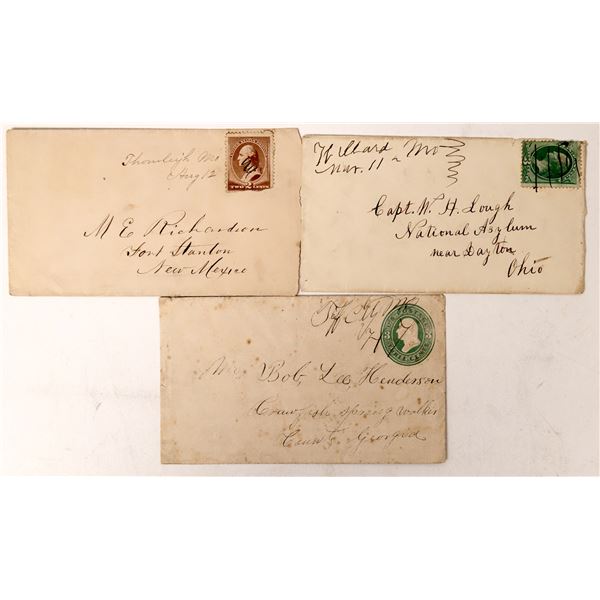 Thornleigh Mo
Aug 12
TWO 2 CENTS
M E Richardson
Fort Stanton
New Mexico
Willard Mo
Mar. 11
Capt. W. H. Lough
National Asylum
near Dayton
Ohio
THREE CENTS
Bob Lee Henderson
Crawfish Spring Walker
Count Georgia